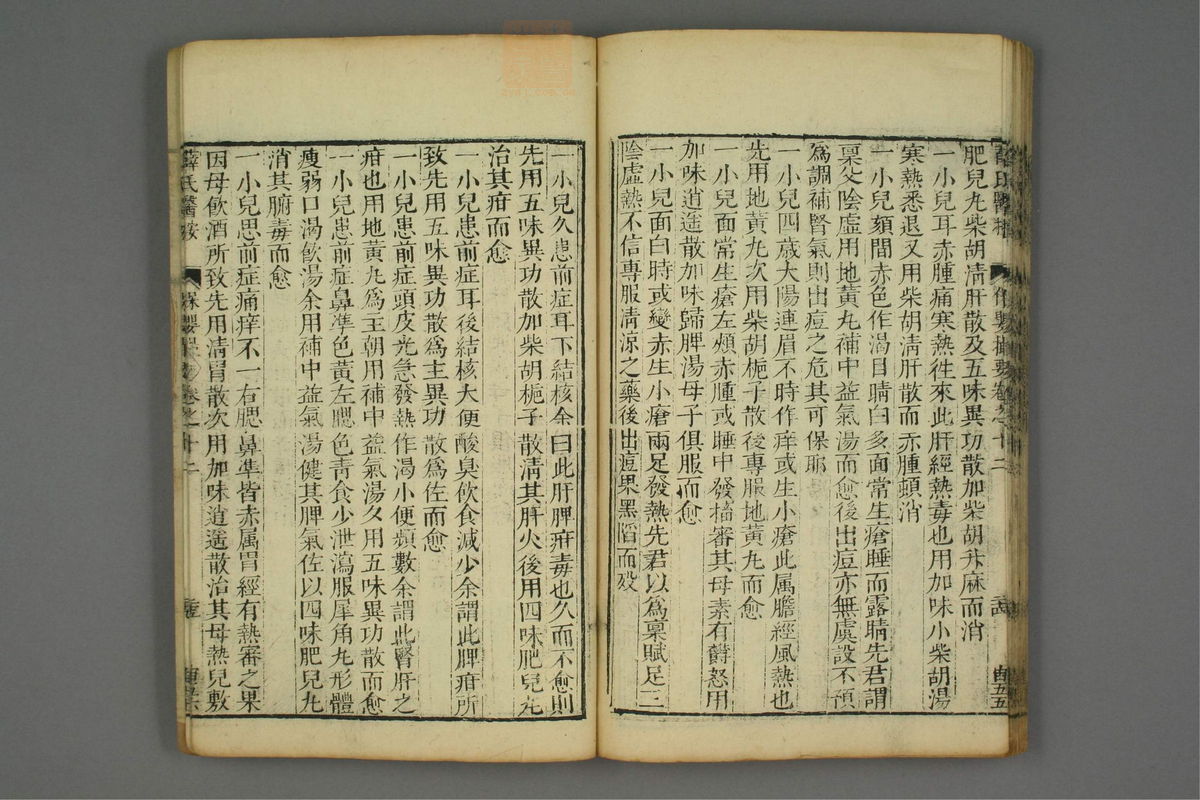 薛氏醫按 保嬰撮要卷之十二 
肥兒丸柴胡清肝散及五味異功散加柴胡升麻而消
一小兒耳赤腫痛寒熱徃來此肝經熱毒也用加味小柴胡湯
寒熱悉退又用柴胡清肝散而赤腫頓消
一小兒頦間赤色作渴目睛白多面常生瘡睡而露睛先君謂
稟父陰虛用地黃丸補中益氣湯而愈後出痘亦無虞設不預
爲調補腎氣則出痘之危其可保耶
一小兒四歲大陽連眉不時作痒或生小瘡此属膽經風熱也
先用地黃丸次用柴胡梔子散後專服地黃丸而愈
一小兒面常生瘡左頰赤腫或睡中發搐審其母素有欝怒用
加味逍遥散加味歸脾湯母子俱服而愈
一小兒面白時或變赤生小瘡兩足發熱先君以爲稟賦足三
陰虛熱不信專服清涼之藥後出痘果黑陷而歿
一小兒久患前症耳下結核余曰此肝脾疳毒也久而不愈則
先用五味異功散加柴胡梔子散清其肝火後用四味肥兒丸
治其疳而愈
一小兒患前症耳後結核大便酸臭飲食減少余謂此脾疳所
致先用五味異功散爲主異功散爲佐而愈
一小兒患前症頭皮光急發熱作渴小便頻數余謂此腎肝之
疳也用地黃丸爲主朝用補中益氣湯久用五味異功散而愈
一小兒患前症鼻準色黃左腮色青食少泄瀉服犀角丸形體
瘦弱口渴飲湯余用補中益氣湯健其脾氣佐以四味肥兒丸
消其腑毒而愈
一小兒思前症痛痒不一右腮鼻準皆赤属胃經有熱審之果
因母飲酒所致先用清胃散次用加味逍遥散治其母熱兒敷
薛氏醫按 保嬰撮要卷之十二